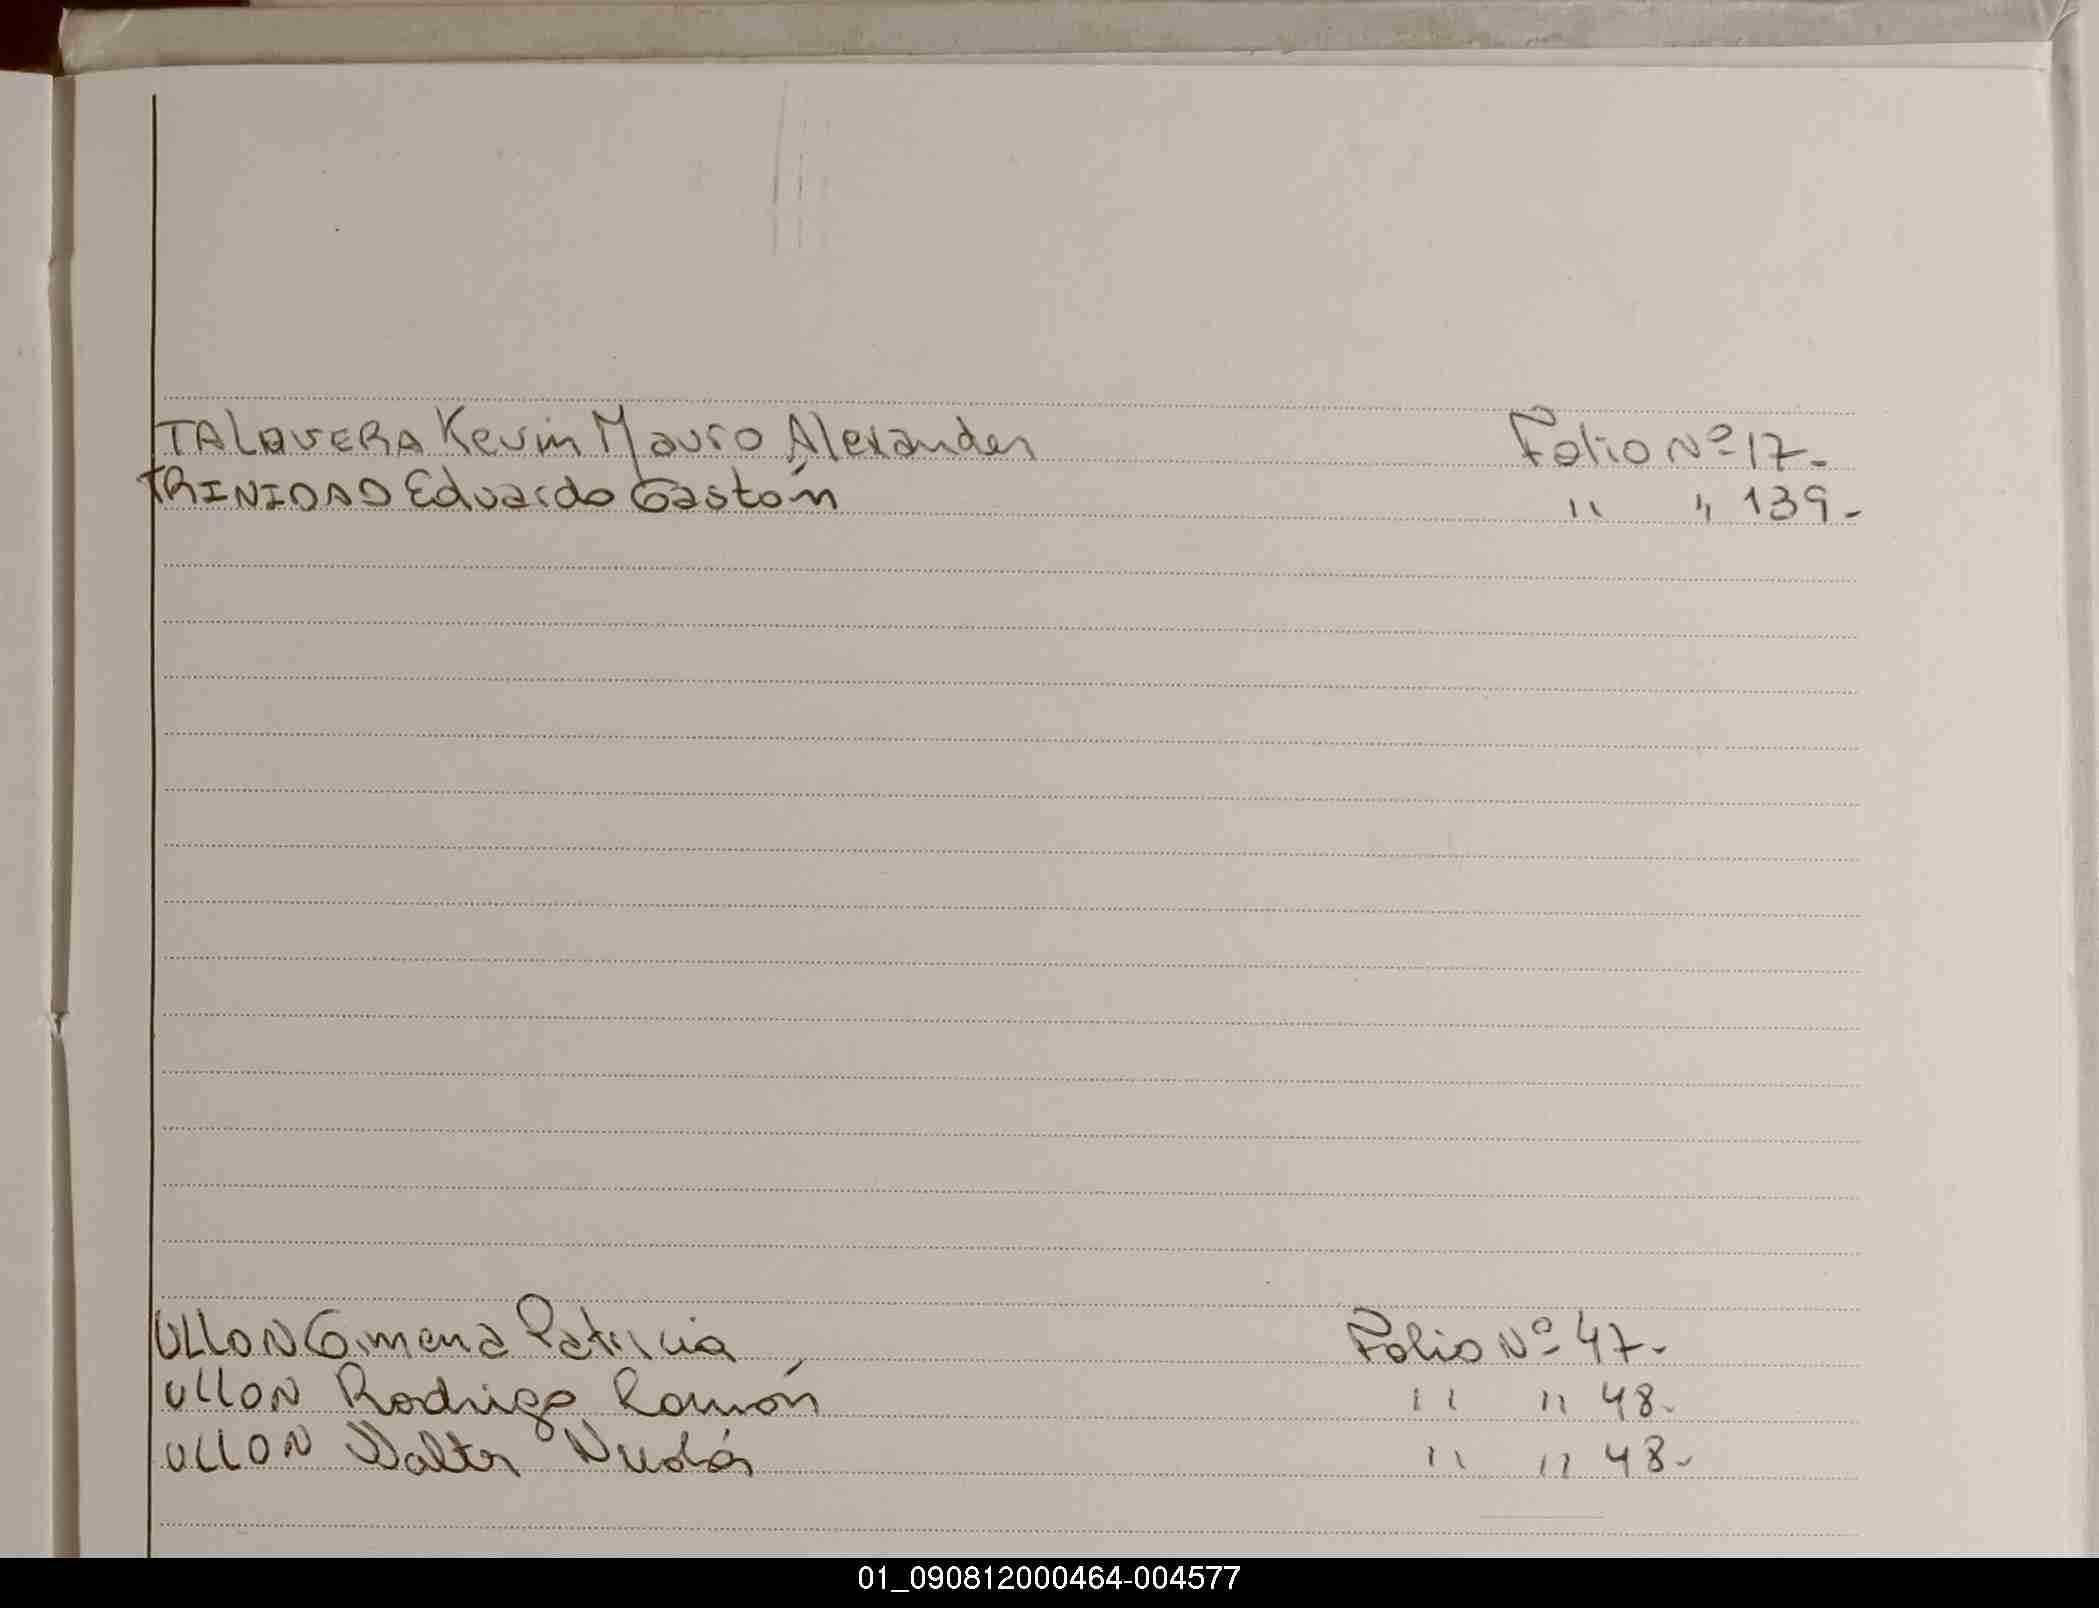 TALAVERA Kevin Mauro Alexander Folio Nº 17.-
TRINIDAD Eduardo Gastón " " 139.-
ULLON Gimena Patricia Folio Nº 47.-
ULLON Rodrigo Ramón " " 48.-
ULLON Walter Nicolás " " 48.-
01_090812000464-004577